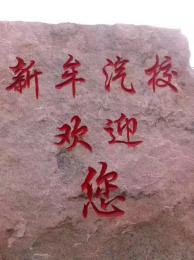 新牟汽校
欢迎
您